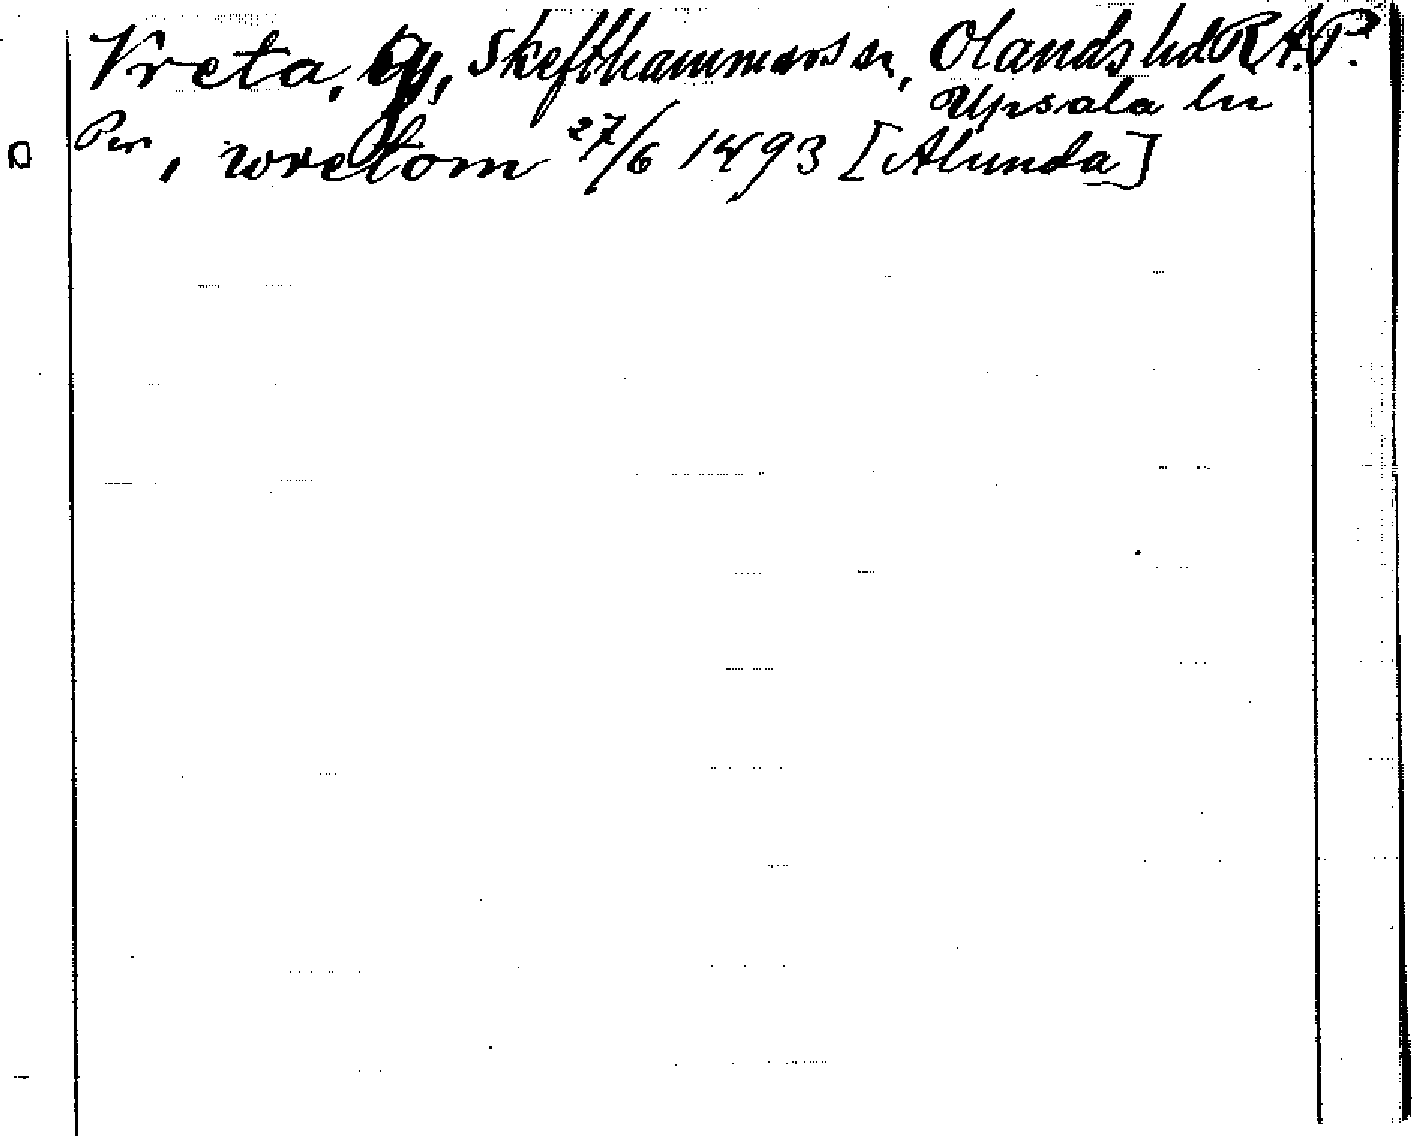 Vreta, by, Skefthammars sn, Olands hd R.A.P.
Upsala ln
Per, i wretom 27/6 1493 [Alunda]